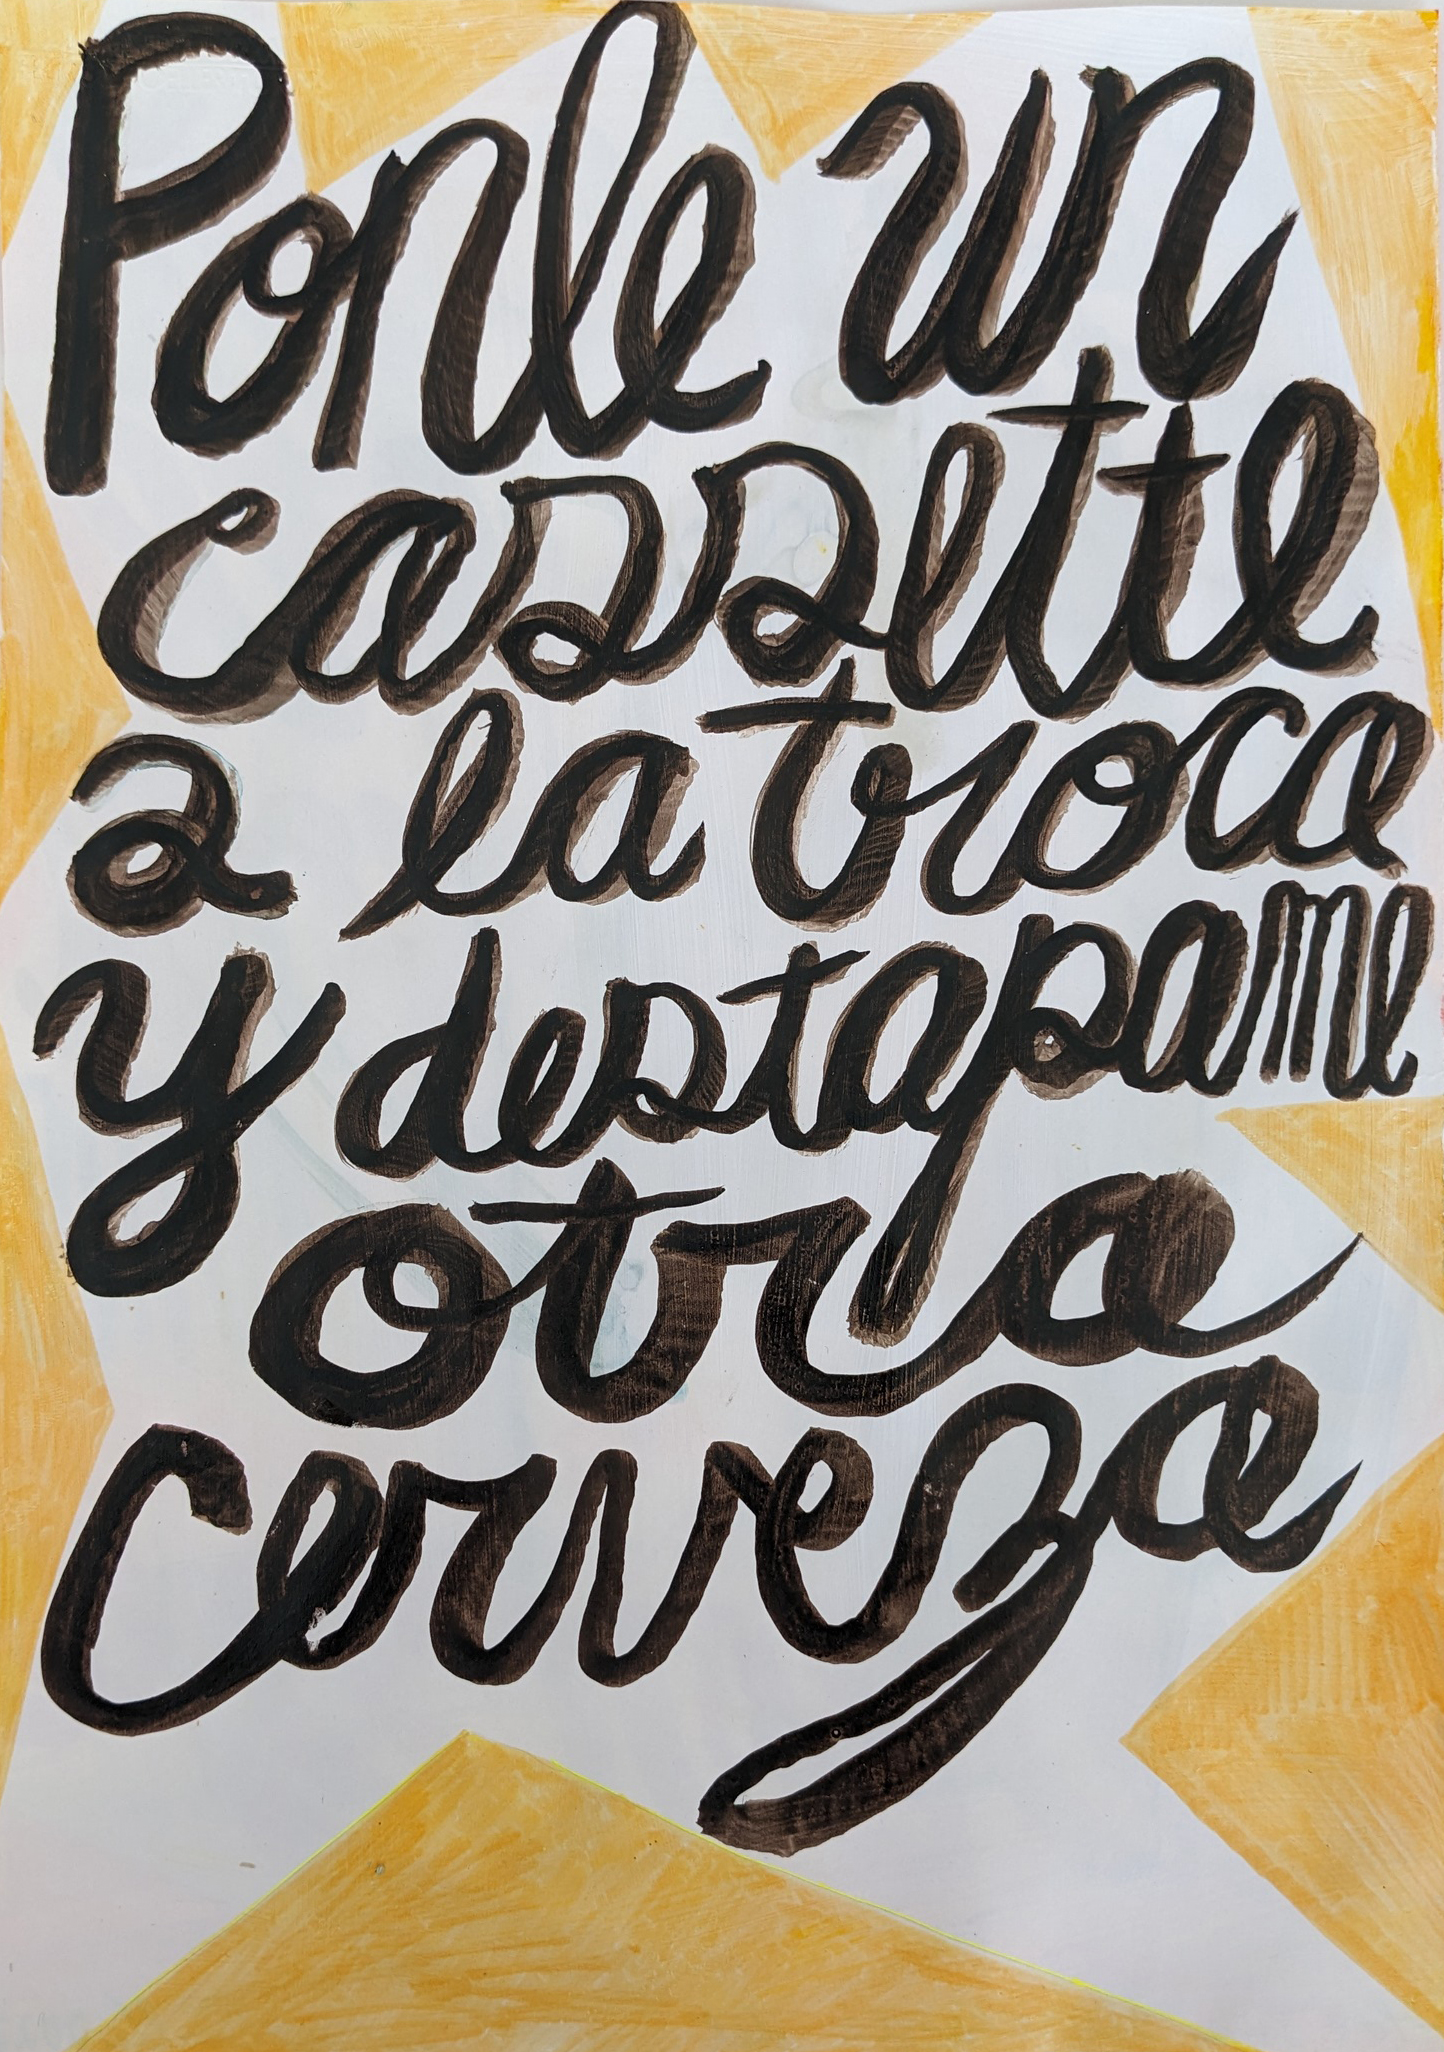 Ponle un
cassette
a la troca
y destapame
otra
cerveza